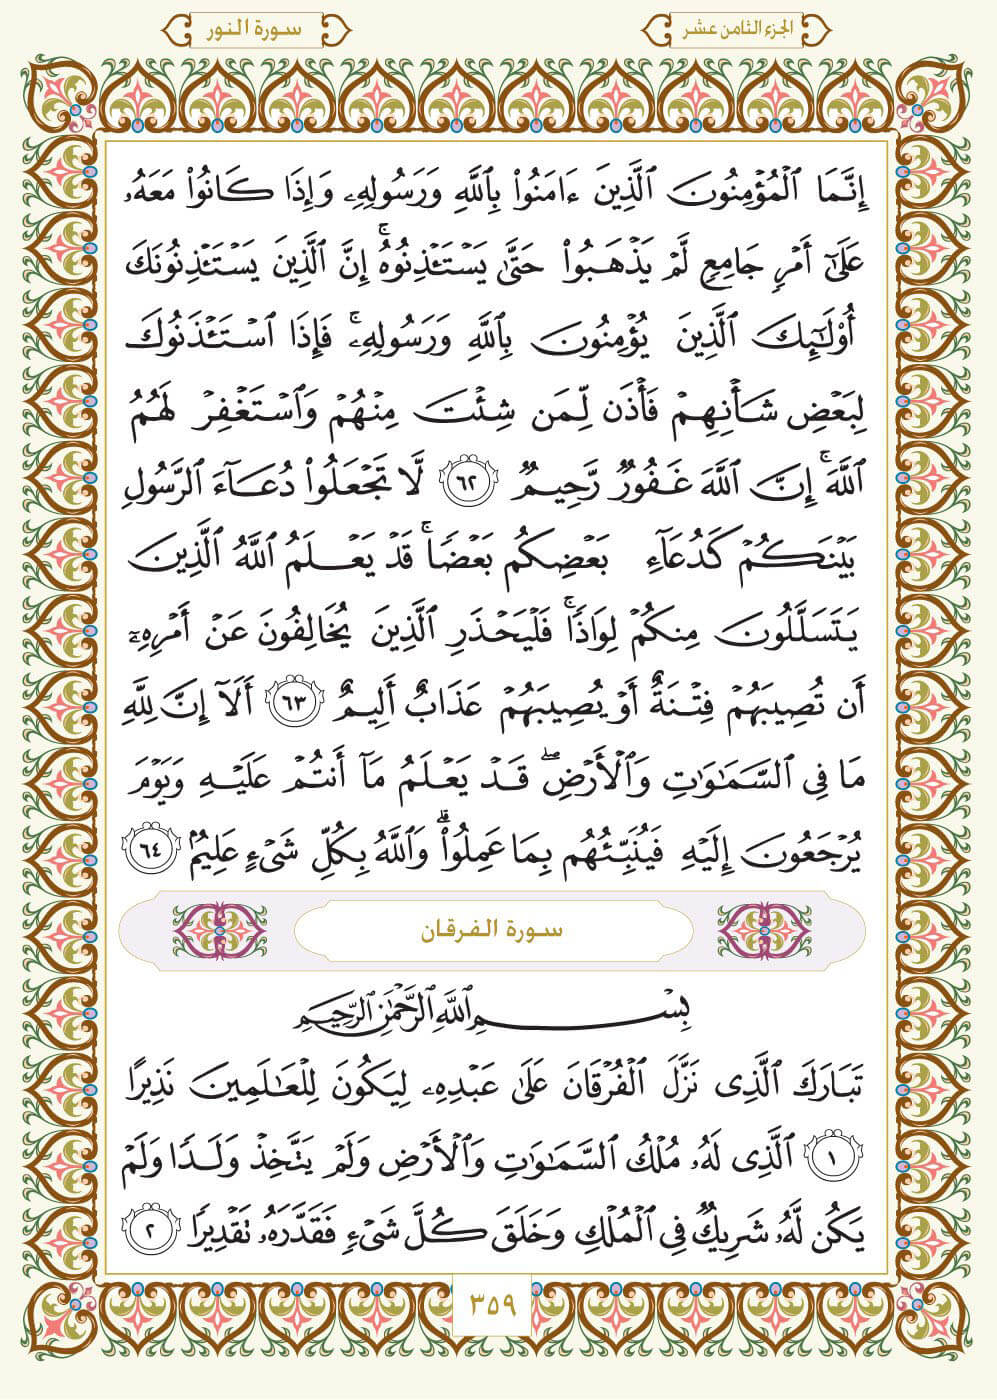 الجزء الثامن عشر
سورة النور
إِنَّمَا ٱلْمُؤْمِنُونَ ٱلَّذِينَ ءَامَنُوا۟ بِٱللَّهِ وَرَسُولِهِۦ وَإِذَا كَانُوا۟ مَعَهُۥ
عَلَىٰٓ أَمْرٍ جَامِعٍ لَّمْ يَذْهَبُوا۟ حَتَّىٰ يَسْتَـْٔذِنُوهُ ۚ إِنَّ ٱلَّذِينَ يَسْتَـْٔذِنُونَكَ
أُو۟لَـٰٓئِكَ ٱلَّذِينَ يُؤْمِنُونَ بِٱللَّهِ وَرَسُولِهِۦ ۚ فَإِذَا ٱسْتَـْٔذَنُوكَ
لِبَعْضِ شَأْنِهِمْ فَأْذَن لِّمَن شِئْتَ مِنْهُمْ وَٱسْتَغْفِرْ لَهُمُ
ٱللَّهَ ۚ إِنَّ ٱللَّهَ غَفُورٌ رَّحِيمٌ ٦٢ لَّا تَجْعَلُوا۟ دُعَآءَ ٱلرَّسُولِ
بَيْنَكُمْ كَدُعَآءِ بَعْضِكُم بَعْضًا ۚ قَدْ يَعْلَمُ ٱللَّهُ ٱلَّذِينَ
يَتَسَلَّلُونَ مِنكُمْ لِوَاذًا ۚ فَلْيَحْذَرِ ٱلَّذِينَ يُخَالِفُونَ عَنْ أَمْرِهِۦٓ
أَن تُصِيبَهُمْ فِتْنَةٌ أَوْ يُصِيبَهُمْ عَذَابٌ أَلِيمٌ ٦٣ أَلَآ إِنَّ لِلَّهِ
مَا فِى ٱلسَّمَـٰوَٰتِ وَٱلْأَرْضِ ۖ قَدْ يَعْلَمُ مَآ أَنتُمْ عَلَيْهِ وَيَوْمَ
يُرْجَعُونَ إِلَيْهِ فَيُنَبِّئُهُم بِمَا عَمِلُوا۟ ۗ وَٱللَّهُ بِكُلِّ شَىْءٍ عَلِيمٌۢ ٦٤
سورة الفرقان
بِسْمِ ٱللَّهِ ٱلرَّحْمَـٰنِ ٱلرَّحِيمِ
تَبَارَكَ ٱلَّذِى نَزَّلَ ٱلْفُرْقَانَ عَلَىٰ عَبْدِهِۦ لِيَكُونَ لِلْعَـٰلَمِينَ نَذِيرًا
١ ٱلَّذِى لَهُۥ مُلْكُ ٱلسَّمَـٰوَٰتِ وَٱلْأَرْضِ وَلَمْ يَتَّخِذْ وَلَدًا وَلَمْ
يَكُن لَّهُۥ شَرِيكٌ فِى ٱلْمُلْكِ وَخَلَقَ كُلَّ شَىْءٍ فَقَدَّرَهُۥ تَقْدِيرًا ٢
٣٥٩